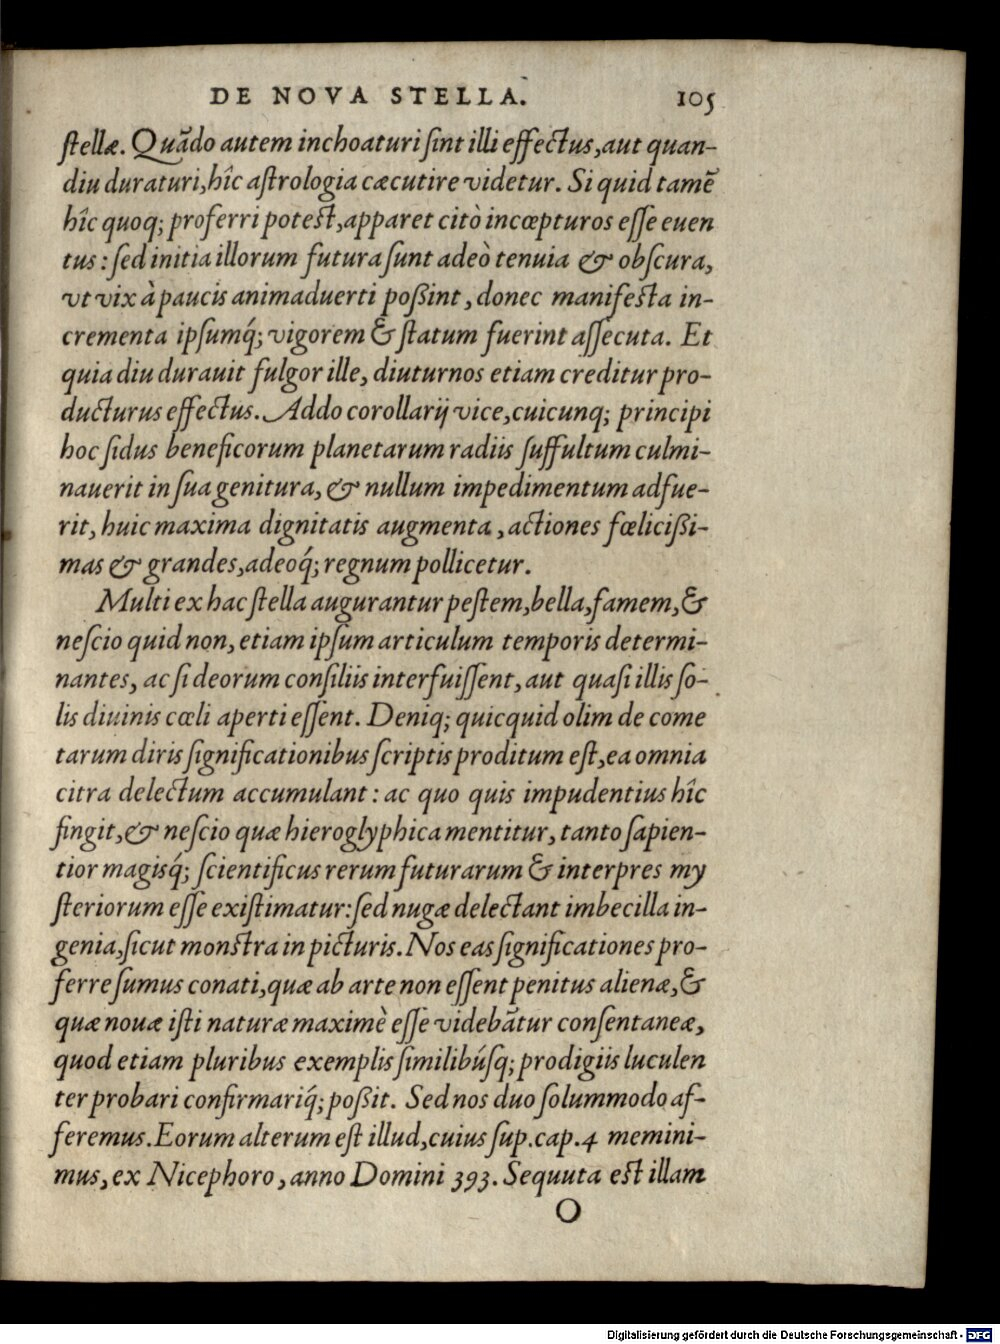 DE NOVA STELLA. 105
ſtellæ. Quãdo autem inchoaturi ſint illi effectus, aut quan-
diu duraturi, hîc aſtrologia cæcutire videtur. Si quid tamẽ
hîc quoq; proferri poteſt, apparet citò incœpturos eſſe euen
tus: ſed initia illorum futura ſunt adeò tenuia & obſcura,
vt vix à paucis animaduerti poßint, donec manifeſta in-
crementa ipſumq́; vigorem & ſtatum fuerint aſſecuta. Et
quia diu durauit fulgor ille, diuturnos etiam creditur pro-
ducturus effectus. Addo corollarij vice, cuicunq; principi
hoc ſidus beneficorum planetarum radiis ſuffultum culmi-
nauerit in ſua genitura, & nullum impedimentum adfue-
rit, huic maxima dignitatis augmenta, actiones fœlicißi-
mas & grandes, adeoq́; regnum pollicetur.
Multi ex hac ſtella augurantur peſtem, bella, famem, &
neſcio quid non, etiam ipſum articulum temporis determi-
nantes, ac ſi deorum conſiliis interfuiſſent, aut quaſi illis ſo-
lis diuinis cœli aperti eſſent. Deniq; quicquid olim de come
tarum diris ſignificationibus ſcriptis proditum eſt, ea omnia
citra delectum accumulant: ac quo quis impudentius hîc
fingit, & neſcio quæ hieroglyphica mentitur, tanto ſapien-
tior magisq́; ſcientificus rerum futurarum & interpres my
ſteriorum eſſe exiſtimatur: ſed nugæ delectant imbecilla in-
genia, ſicut monſtra in picturis. Nos eas ſignificationes pro-
ferre ſumus conati, quæ ab arte non eſſent penitus alienæ, &
quæ nouæ iſti naturæ maximè eſſe videbãtur conſentaneæ,
quod etiam pluribus exemplis ſimilibúſq; prodigiis luculen
ter probari confirmariq́; poßit. Sed nos duo ſolummodo af-
feremus. Eorum alterum eſt illud, cuius ſup. cap. 4 memini-
mus, ex Nicephoro, anno Domini 393. Sequuta eſt illam
O
Digitalisierung gefördert durch die Deutsche Forschungsgemeinschaft - DFG